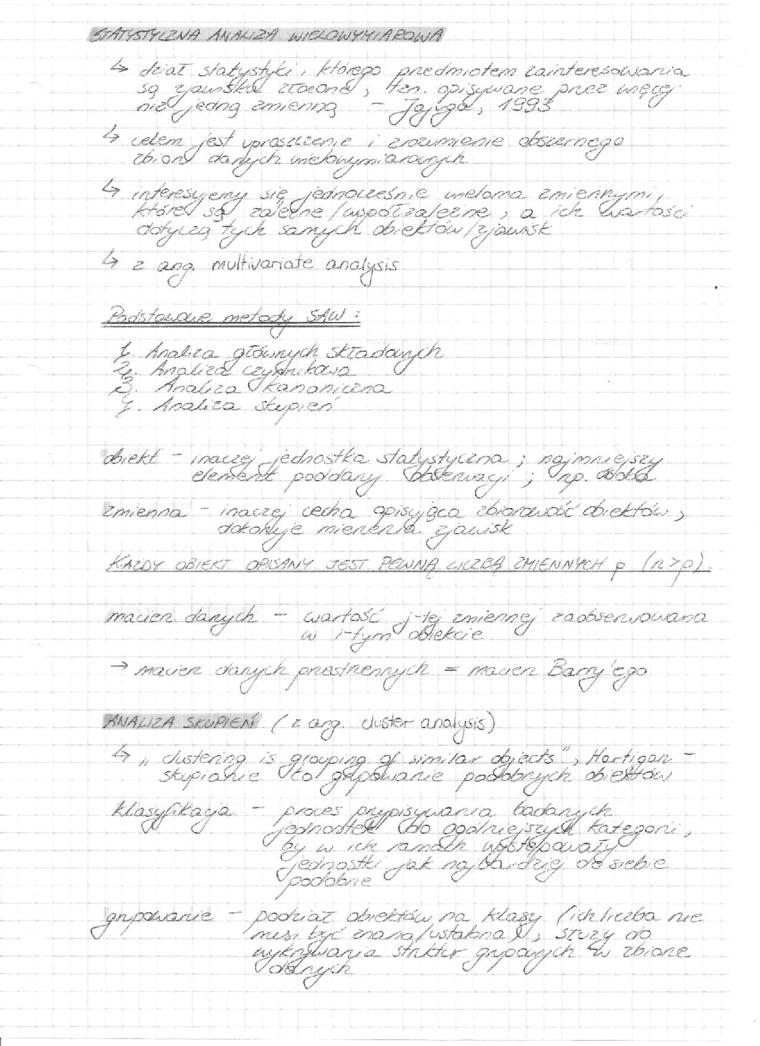 STATYSTYCZNA ANALIZA WIELOWYMIAROWA
↳ dział statystyki, którego przedmiotem zainteresowania
są zjawiska złożone, tzn. opisywane przez więcej
niż jedną zmienną – Jajuga, 1993
↳ celem jest uproszczenie i zrozumienie obszernego
zbioru danych wielowymiarowych
↳ interesujemy się jednocześnie wieloma zmiennymi,
które są zależne/współzależne, a ich wartości
dotyczą tych samych obiektów/zjawisk
↳ z ang. multivariate analysis
Podstawowe metody SAW:
1. Analiza głównych składanych
2. Analiza czynnikowa
3. Analiza kanoniczna
4. Analiza skupień
obiekt – inaczej jednostka statystyczna; najmniejszy
element poddany obserwacji; np. osoba
zmienna – inaczej cecha opisująca zbiorowość obiektów,
dokonuje mierzenia zjawisk
KAŻDY OBIEKT OPISANY JEST PEWNĄ LICZBĄ ZMIENNYCH p (n>p).
macierz danych – wartość j-tej zmiennej zaobserwowana
w i-tym obiekcie
→ macierz danych przestrzennych = macierz Barry'ego
ANALIZA SKUPIEŃ (z ang. cluster analysis)
↳ „clustering is grouping of similar objects", Hartigan –
skupianie to grupowanie podobnych obiektów
klasyfikacja – proces przypisywania badanych
jednostek do ogólniejszych kategorii,
by w ich ramach występowały
jednostki jak najbardziej do siebie
podobne
grupowanie – podział obiektów na klasy (ich liczba nie
musi być znana/ustalona), służy do
wykrywania struktur grupowych w zbiorze
danych